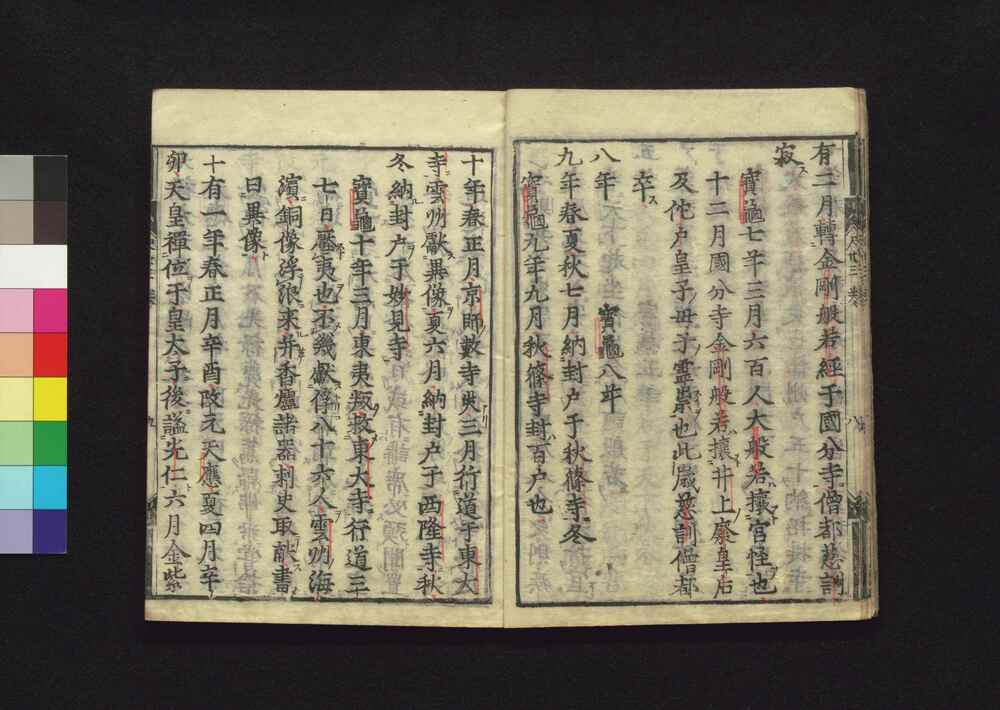 有二月轉金剛般若經于國分寺僧都慈訓
寂
寶龜七年三月六百人大般若攘宮怪也
十二月國分寺金剛般若攘井上廢皇后
及佗戸皇子母子靈祟也此歲慈訓僧都
卒
八年 寶龜八年
九年春夏秋七月納封户于秋篠寺冬
寶龜九年九月秋篠寺封百户也
十年春正月京師數寺災三月行道于東大
寺雲州獻異像夏六月納封户于西隆寺秋
冬納封户于妙見寺
寶龜十年三月東夷叛救東大寺行道三
七日壓夷也不幾獻俘八十六人雲州海
濱銅像浮浪來并香爐諸器刺史取献書
曰異像
十有一年春正月辛酉改元天應夏四月辛
卯天皇禪位于皇太子後謚光仁六月金紫